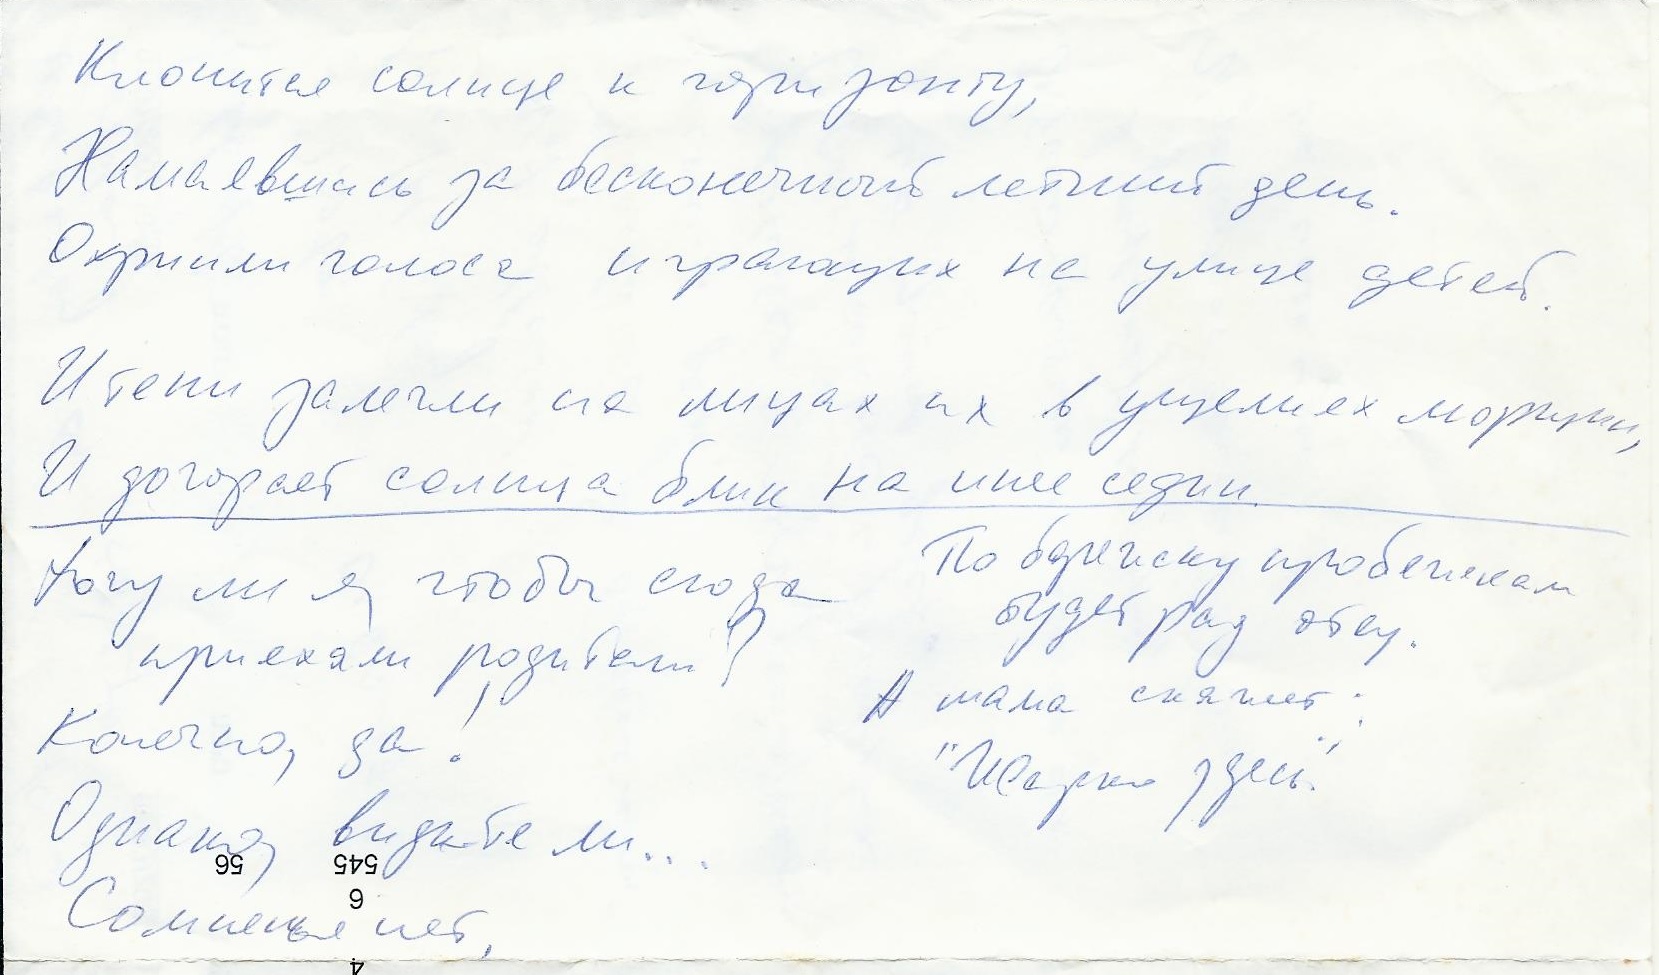 Клонится солнце к горизонту,
Намаявшись за бесконечный летний день.
Охрипли голоса играющих на улице детей.
И тени залегли на лицах их в ущелиях морщин,
И догорает солнца блик на инее седин
Хочу ли я, чтобы сюда
приехали родители?
Конечно, да!
Однако, видите ли...
Сомненья нет,
По будет рад отец.
А мама скажет:
"Жарко здесь."
56
545
6
4